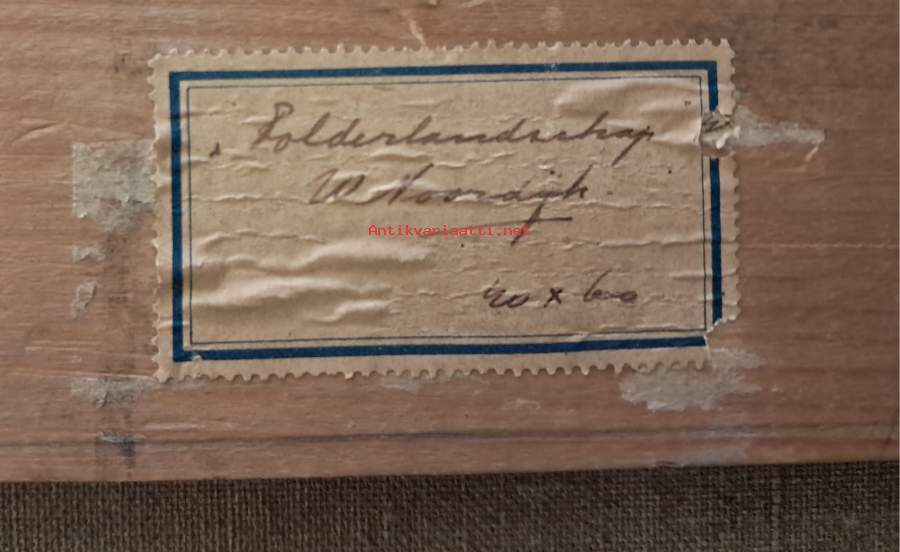 „Polderlandschap
W Noordijk
Antikvariaatti.net
40 x 60